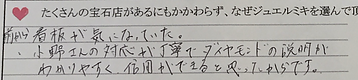 たくさんの宝石店があるにもかかわらず、なぜジュエルミキを選んで頂
前から看板が気になっていた。
・小野さんの対応が丁寧でダイヤモンドの説明が
わかりやすく、信用ができると思ったからです。